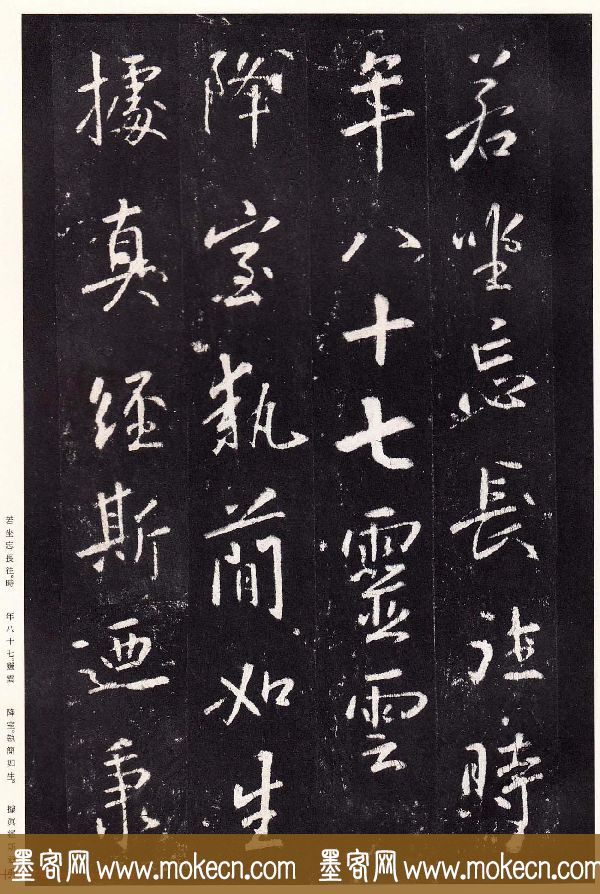 若坐忘長往時
年八十七靈雲
降室執簡如生
據真經斯迺秉
若坐忘長往。時 年八十七。靈雲 降室。執簡如生。 據眞經斯
墨客网 www.mokecn.com 墨客网 www.mokecn.com